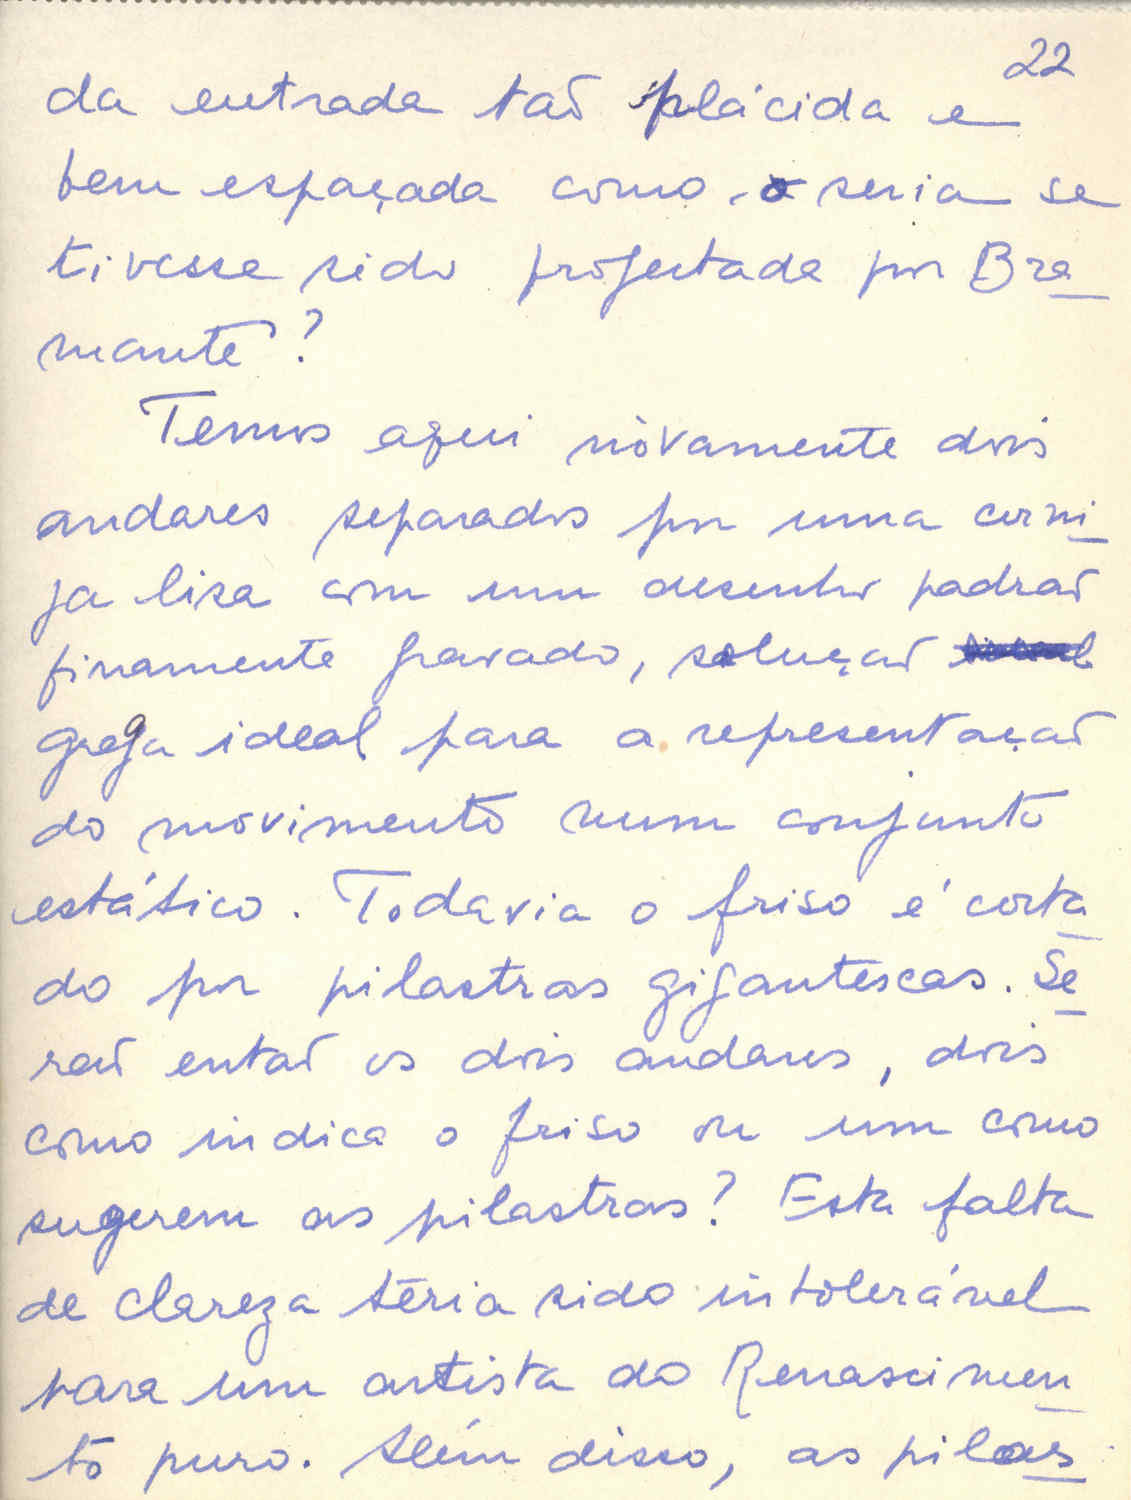 22
da entrada tão plácida e
bem espaçada como o seria se
tivesse sido projectada por Bra_
mante?
Temos aqui nòvamente dois
andares separados por uma corni_
ja lisa com um desenho padrão
finamente gravado, solução
grega ideal para a representação
do movimento num conjunto
estático. Todavia o friso é corta_
do por pilastras gigantescas. Se_
rão então os dois andares, dois
como indica o friso ou um como
sugerem as pilastras? Esta falta
de clareza teria sido intolerável
para um artista do Renascimen_
to puro. Além disso, as pilas_